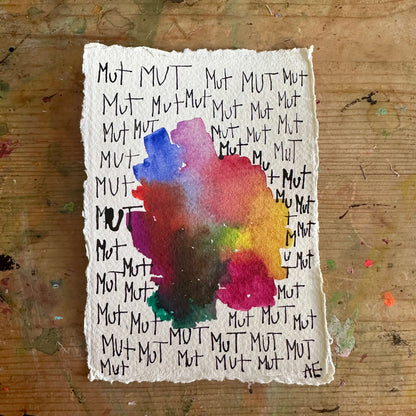 Mut MUT Mut MUT Mut
MUT Mut Mut MUT MUT Mut
Mut MUT Mut MUT Mut
MUT Mut Mut MUT
Mut Mut
MUT Mut Mut
MUT Mut
Mut Mut
MUT Mut
Mut Mut Mut
Mut MUT MUT Mut MUT Mut
Mut MUT Mut MUT MUT MUT
Mut Mut Mut AE